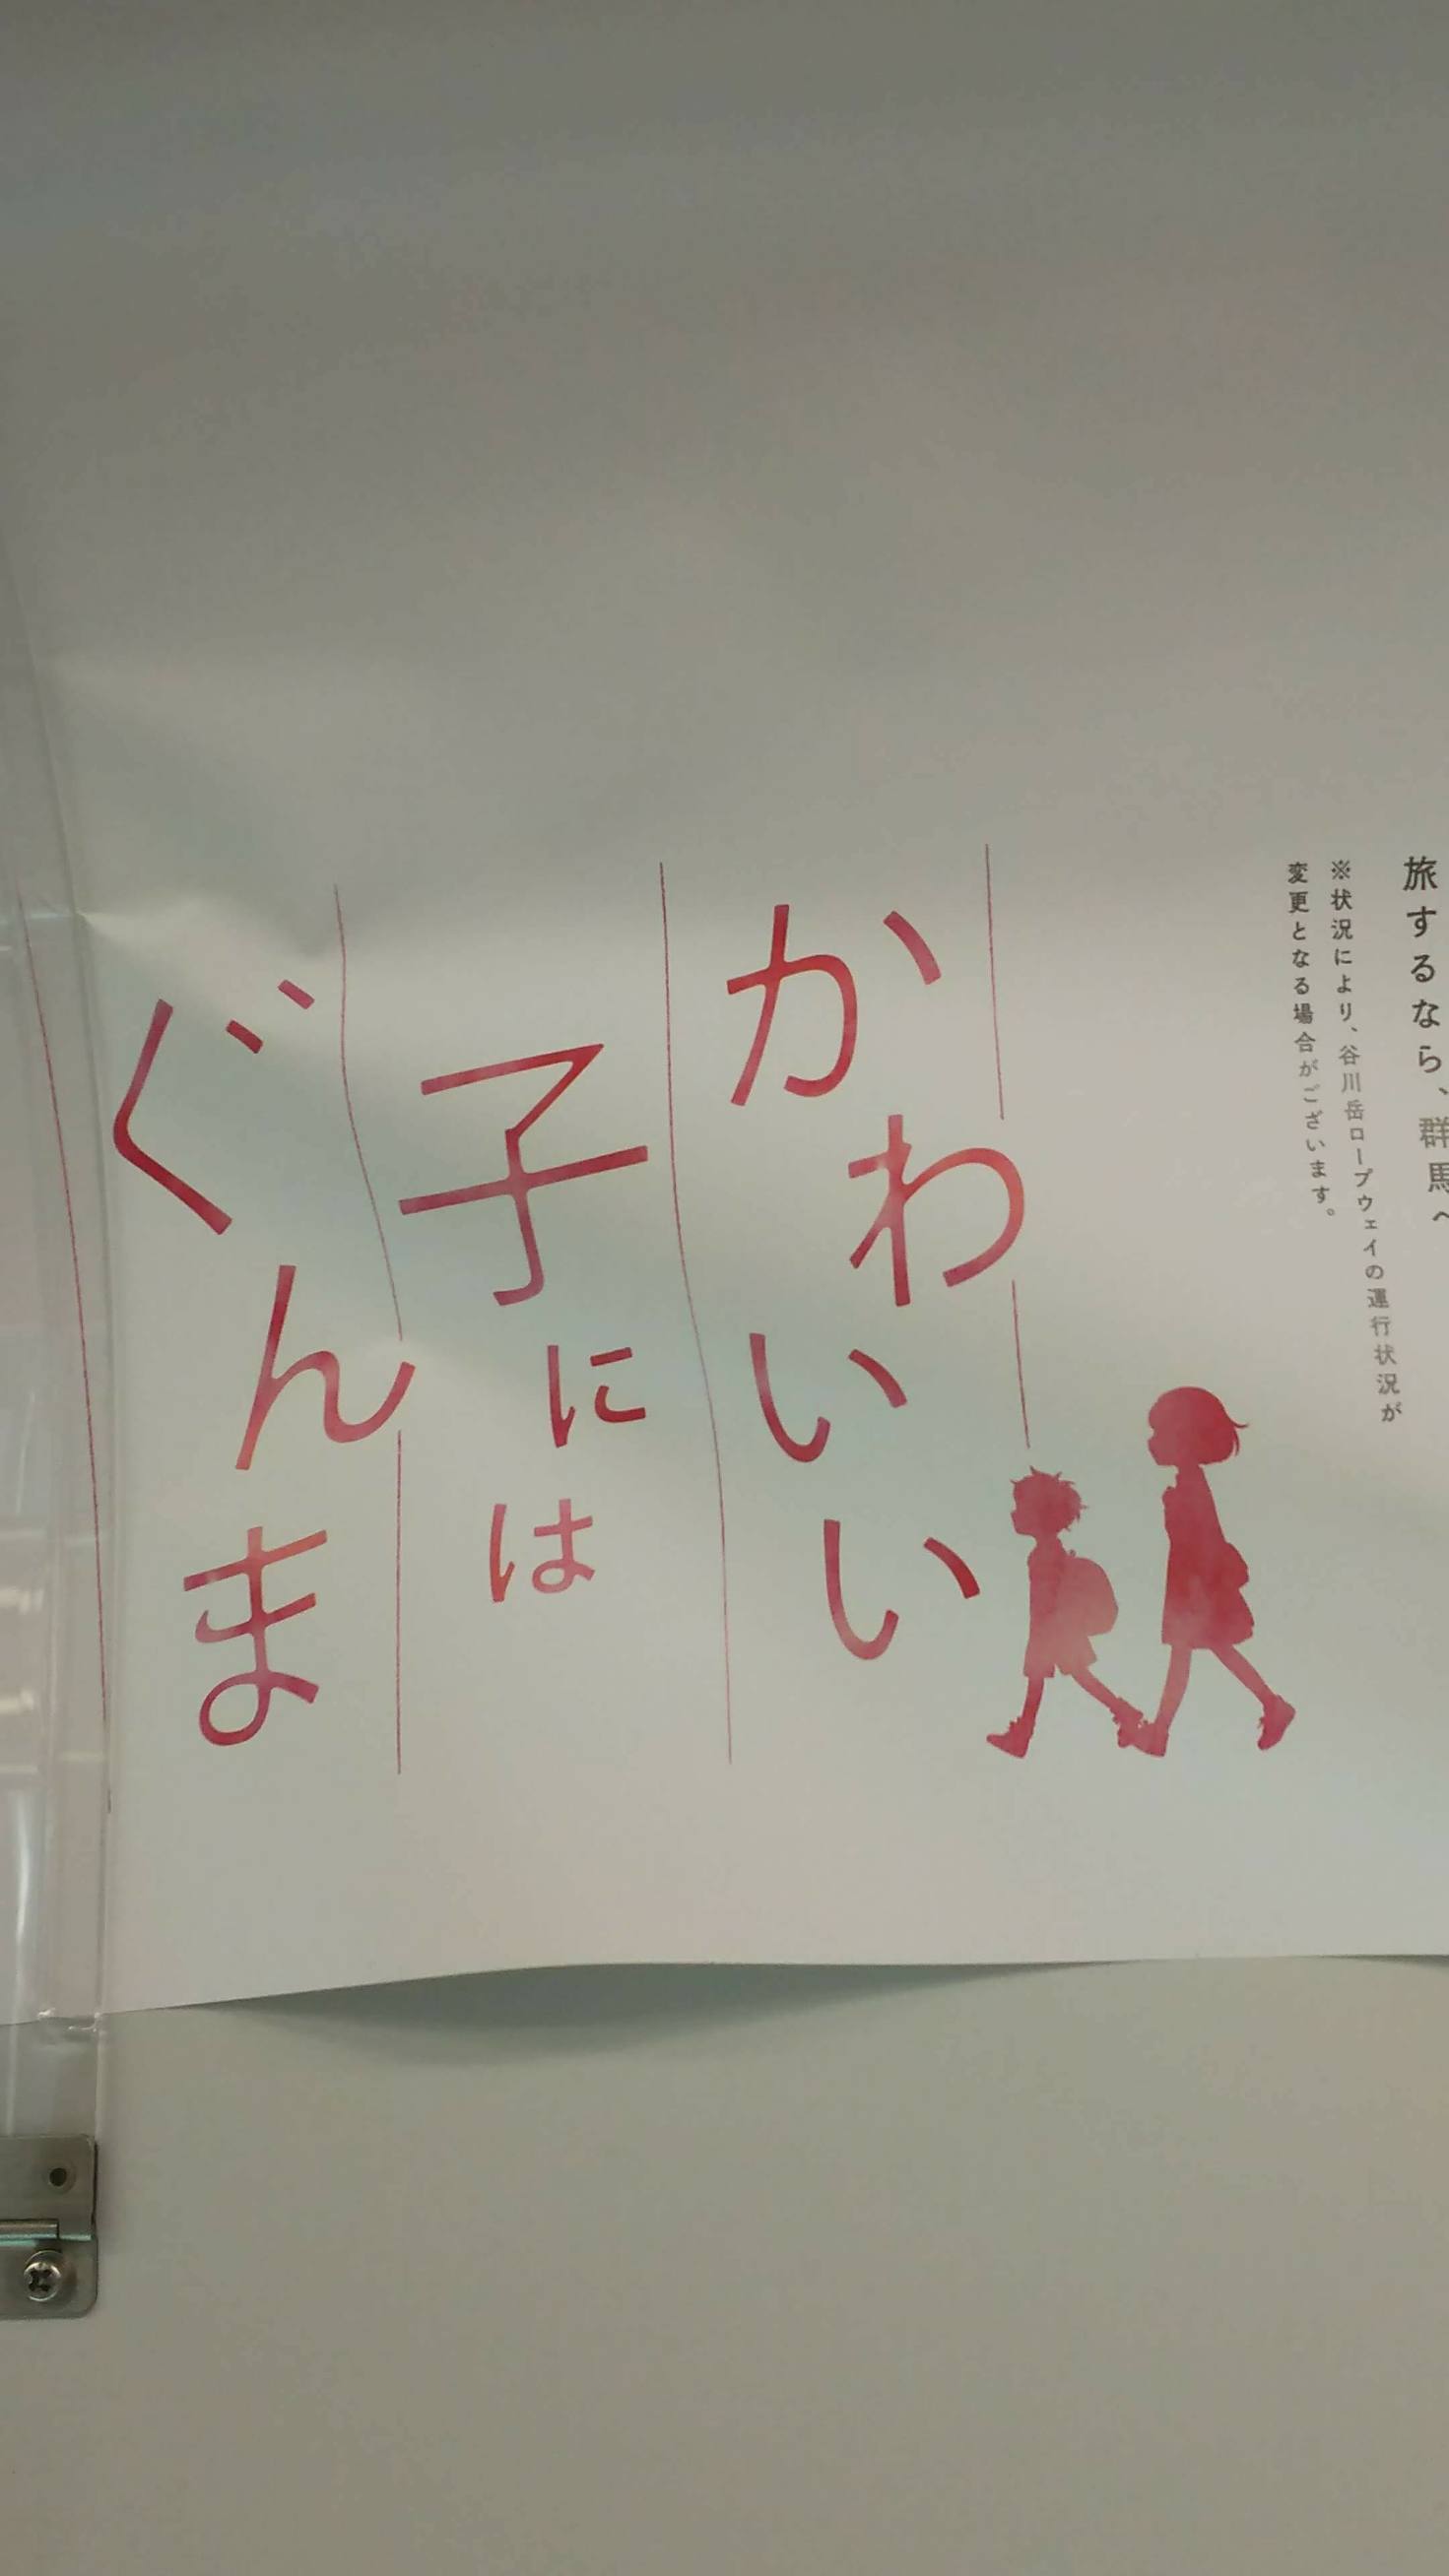 旅するなら、群馬へ
※状況により、谷川岳ロープウェイの運行状況が
変更となる場合がございます。
かわいい
子には
ぐんま